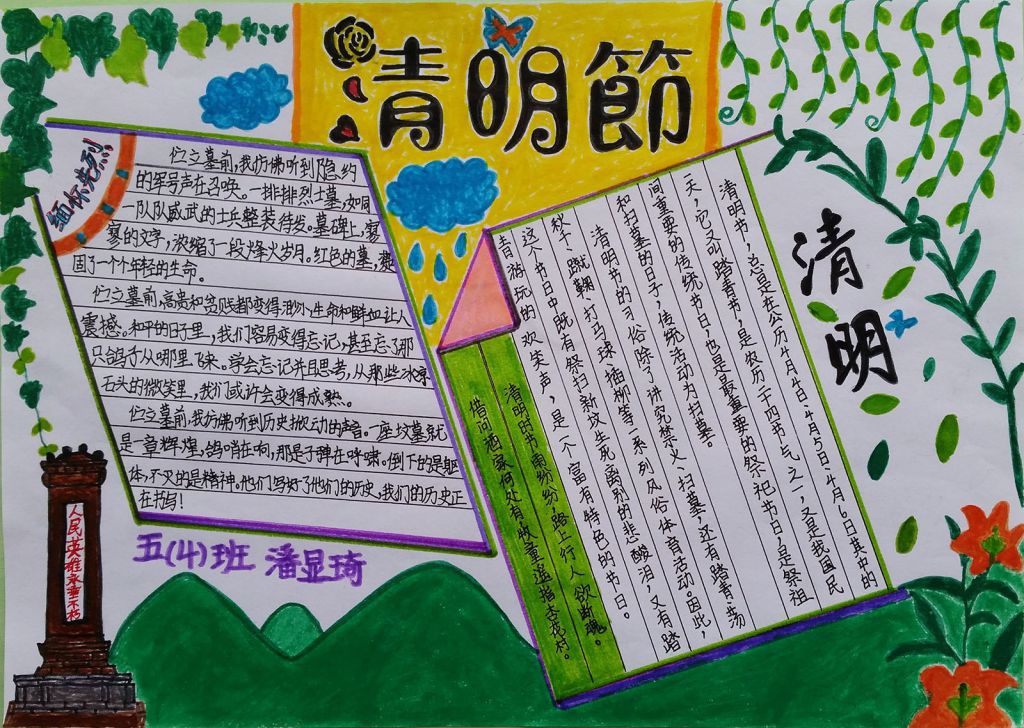 清明節
缅怀先烈
伫立墓前,我仿佛听到隐约
的军号声在召唤。一排排烈士墓,如同
一队队威武的士兵整装待发。墓碑上,寥
寥的文字,浓缩了一段烽火岁月。红色的墓,凝
固了一个个年轻的生命。
伫立墓前,高贵和贫贱都变得渺小,生命和鲜血让人
震撼。和平的日子里,我们容易变得忘记,甚至忘了那
只鸽子从哪里飞来。学会忘记并且思考,从那些冰冷
石头的微笑里,我们或许会变得成熟。
伫立墓前,我仿佛听到历史掀动的声音。一座坟墓就
是一章辉煌,鸽哨在响,那是子弹在呼啸。倒下的是躯
体,不灭的是精神。他们写好了他们的历史,我们的历史正
在书写!
五(4)班 潘显琦
人民英雄永垂不朽
清明
清明节,总是在公历4月4日.4月5日.4月6日其中的
一天,它又叫踏青节,是农历二十四节气之一,又是我国民
间重要的传统节日,也是最重要的祭祀节日,是祭祖
和扫墓的日子,传统活动为扫墓。
清明节的习俗除了讲究禁火、扫墓,还有踏青、荡
秋千、蹴鞠、打马球、插柳等一系列风俗体育活动。因此,
这个节日中既有祭扫新坟生死离别的悲酸泪,又有踏
青游玩的欢笑声,是一个富有特色的节日。
清明时节雨纷纷,路上行人欲断魂。
借问酒家何处有,牧童遥指杏花村。